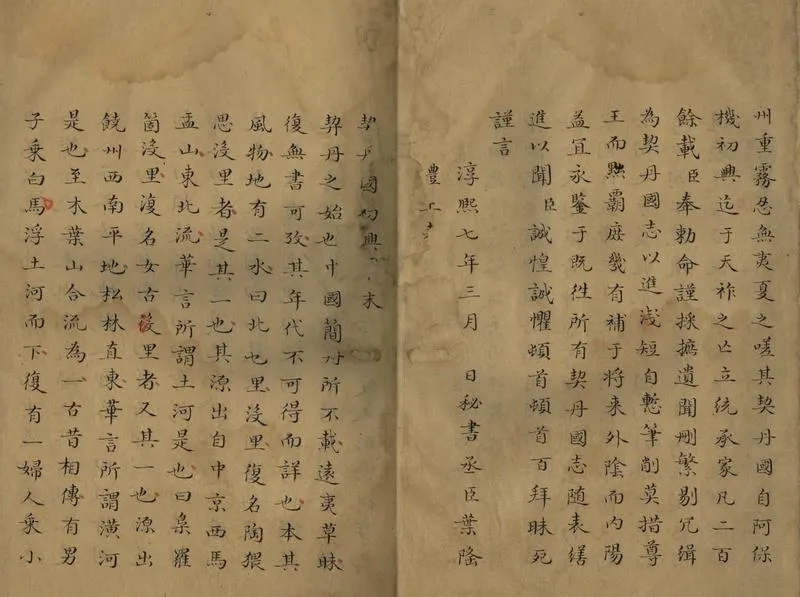 州重霧忍無夷夏之嗟其契丹國自阿保
機初興迄于天祚之亡立统承家凡二百
餘載臣奉勅命謹採摭遺聞刪繁剔冗緝
為契丹國志以進淺短自慙筆削莫措尊
王而黜覇庶幾有補于将来外陰而内陽
益宜永鑒于既徃所有契丹國志随表繕
進以聞臣誠惶誠懼頓首頓首百拜昧死
謹言
淳熙七年三月 日秘書丞臣葉隆
豊上
契丹國初興 末
契丹之始也中國簡 所不載遠夷草昧
復無書可攷其年代不可得而詳也本其
風物地有二水曰北乜里没里復名陶猥
思没里者是其一也其源出自中京西馬
盂山東北流華言所謂土河是也曰裊羅
箇没里復名女古没里者又其一也源出
饒州西南平地松林直東華言所謂潢河
是也至木葉山合流為一古昔相傳有男
子乘白馬浮土河而下復有一婦人乘小